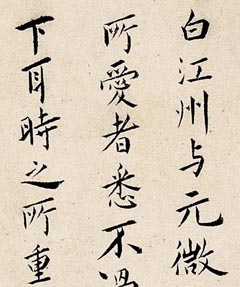 白江州与元微
所愛者悉不過
下耳時之所重